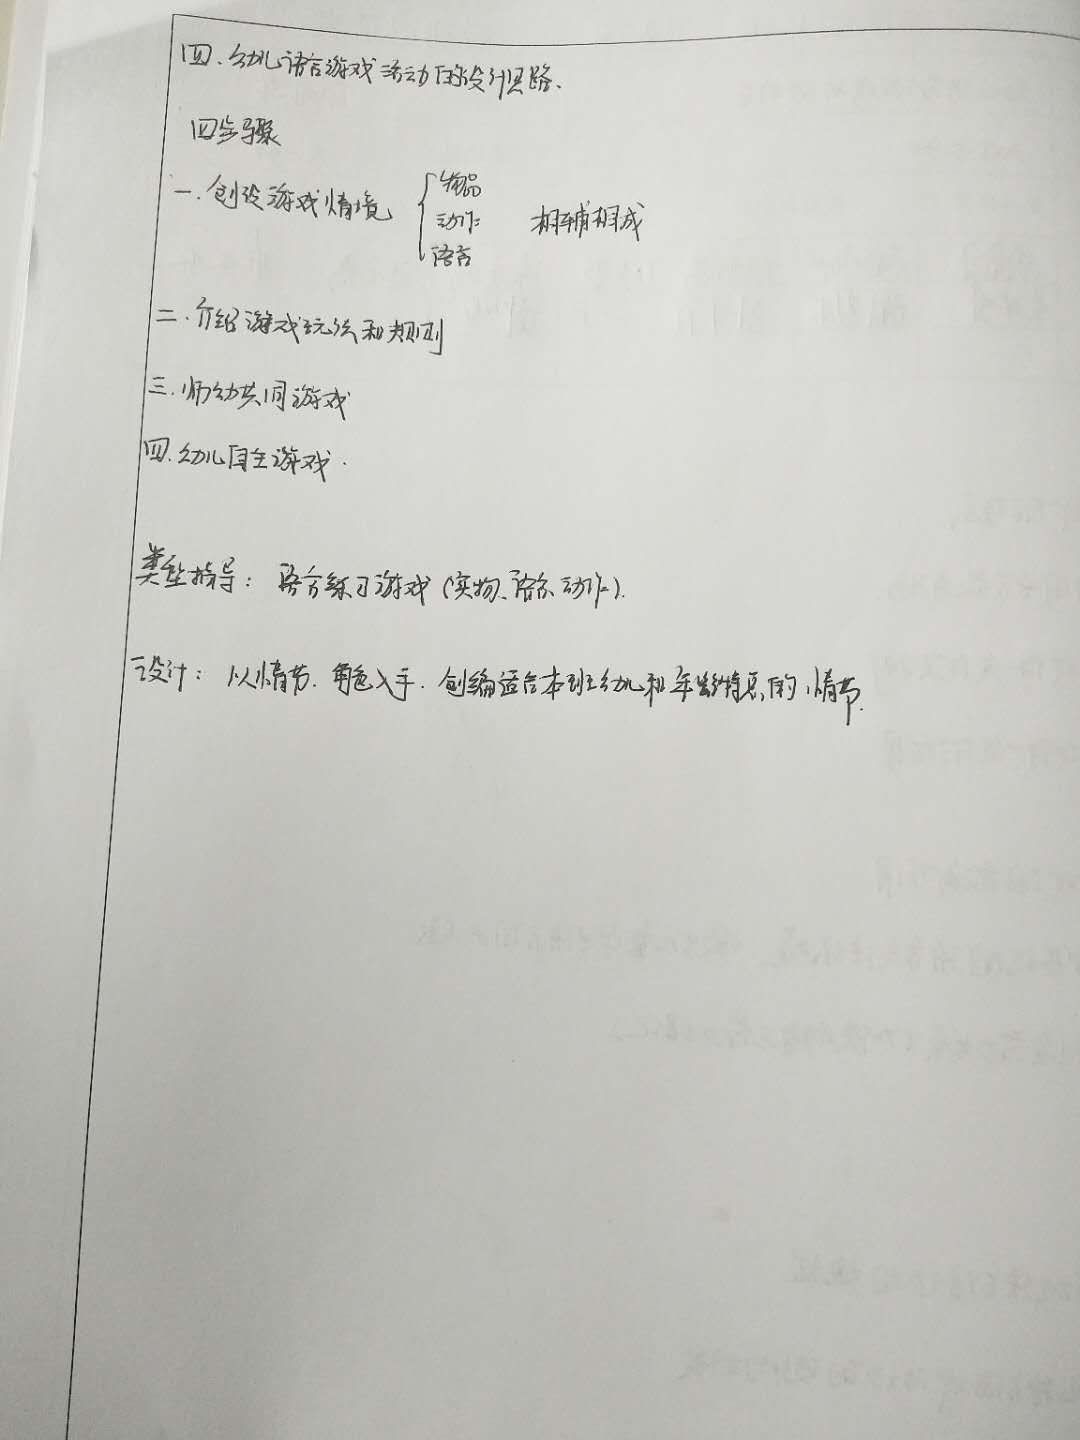 四、幼儿语言游戏活动的设计思路.
四步骤
一.创设游戏情境 { 物品 动作 语言 相辅相成
二.介绍游戏玩法和规则
三.师幼共同游戏
四.幼儿自主游戏.
类型指导: 语言练习游戏(实物、语言、动作).
设计: 从情节、角色入手.创编适合本班幼儿和年龄特点的情节.